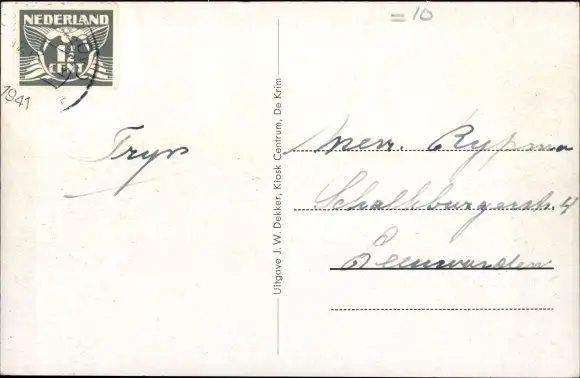 = 10
NEDERLAND
1½
CENT
1941
Tryn
Uitgave J. W. Dekker, Kiosk Centrum, De Krim
Mevr. Rypma
Schalkburgerstr. 4
Leeuwarden